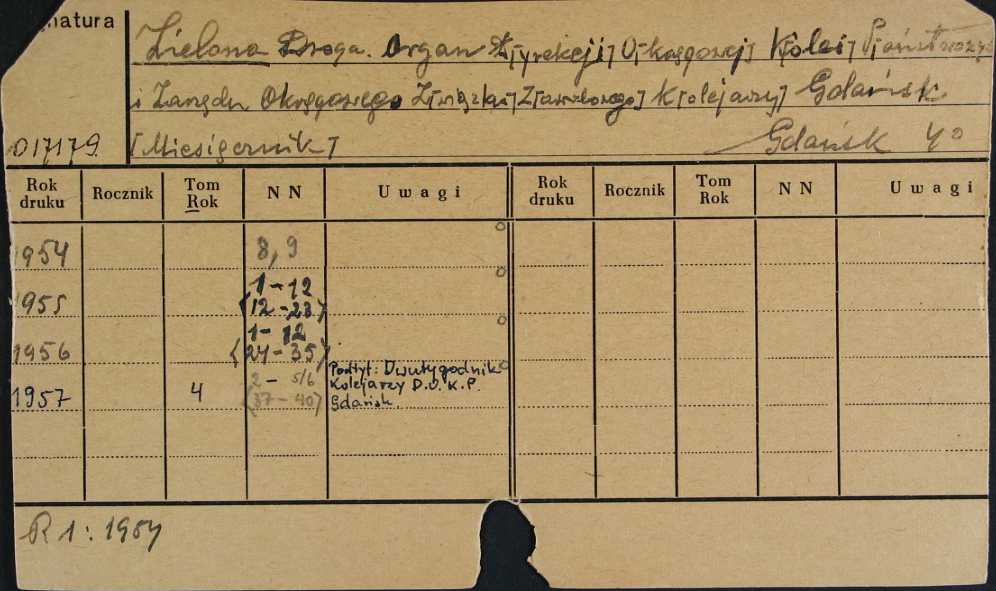 natura
Zielona Droga. Organ D[yrekcji] O[kręgowej] K[olei] P[aństwowych]
i Zarządu Okręgowego Z[wiązku] Z[awodowego] K[olejarzy] Gdańsk
017179 [Miesięcznik] Gdańsk 4°
Rok druku Rocznik Tom Rok N N Uwagi Rok druku Rocznik Tom Rok N N Uwagi
1954 8, 9
1955 1-12
(12-23)
1956 1-12
(24-35)
1957 4 2-5/6
(37-40)
Podtyt: Dwutygodnik
Kolejarzy D.O.K.P.
Gdańsk.
R 1: 1954